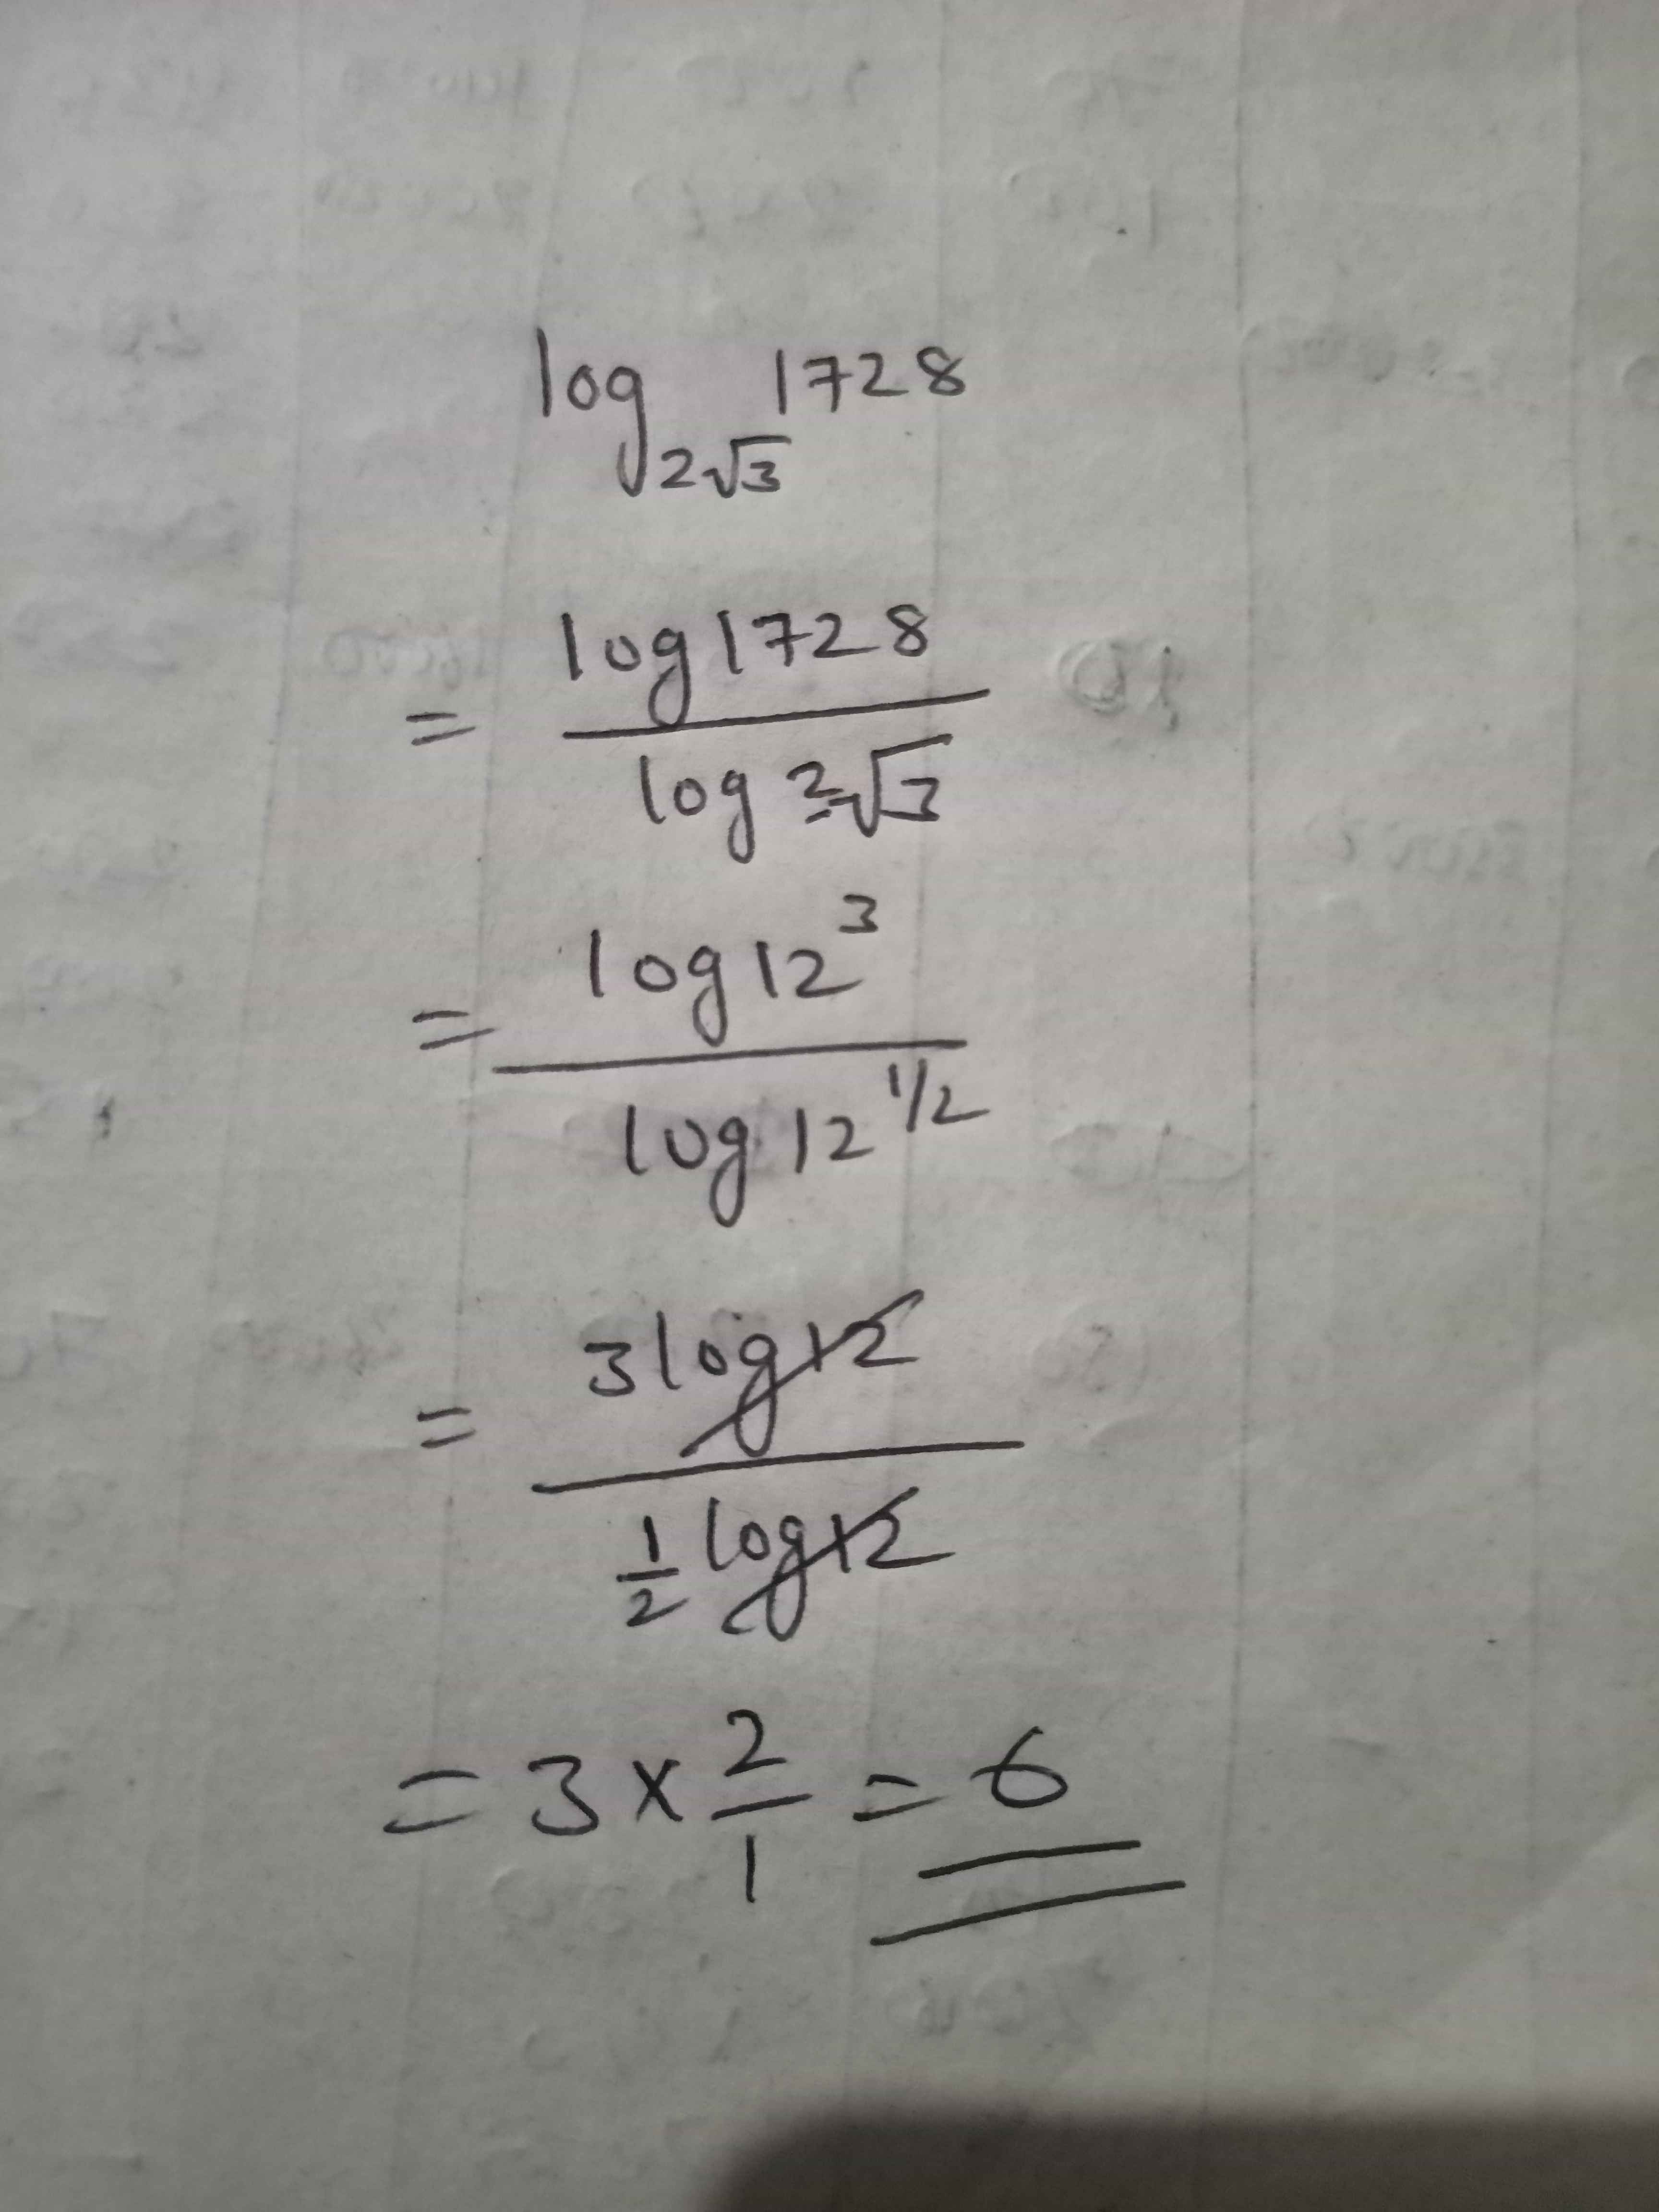 log₂√3 1728
= log 1728 / log 2√3
= log 12³ / log 12^1/2
= 3 log 12 / 1/2 log 12
= 3 × 2/1 = 6